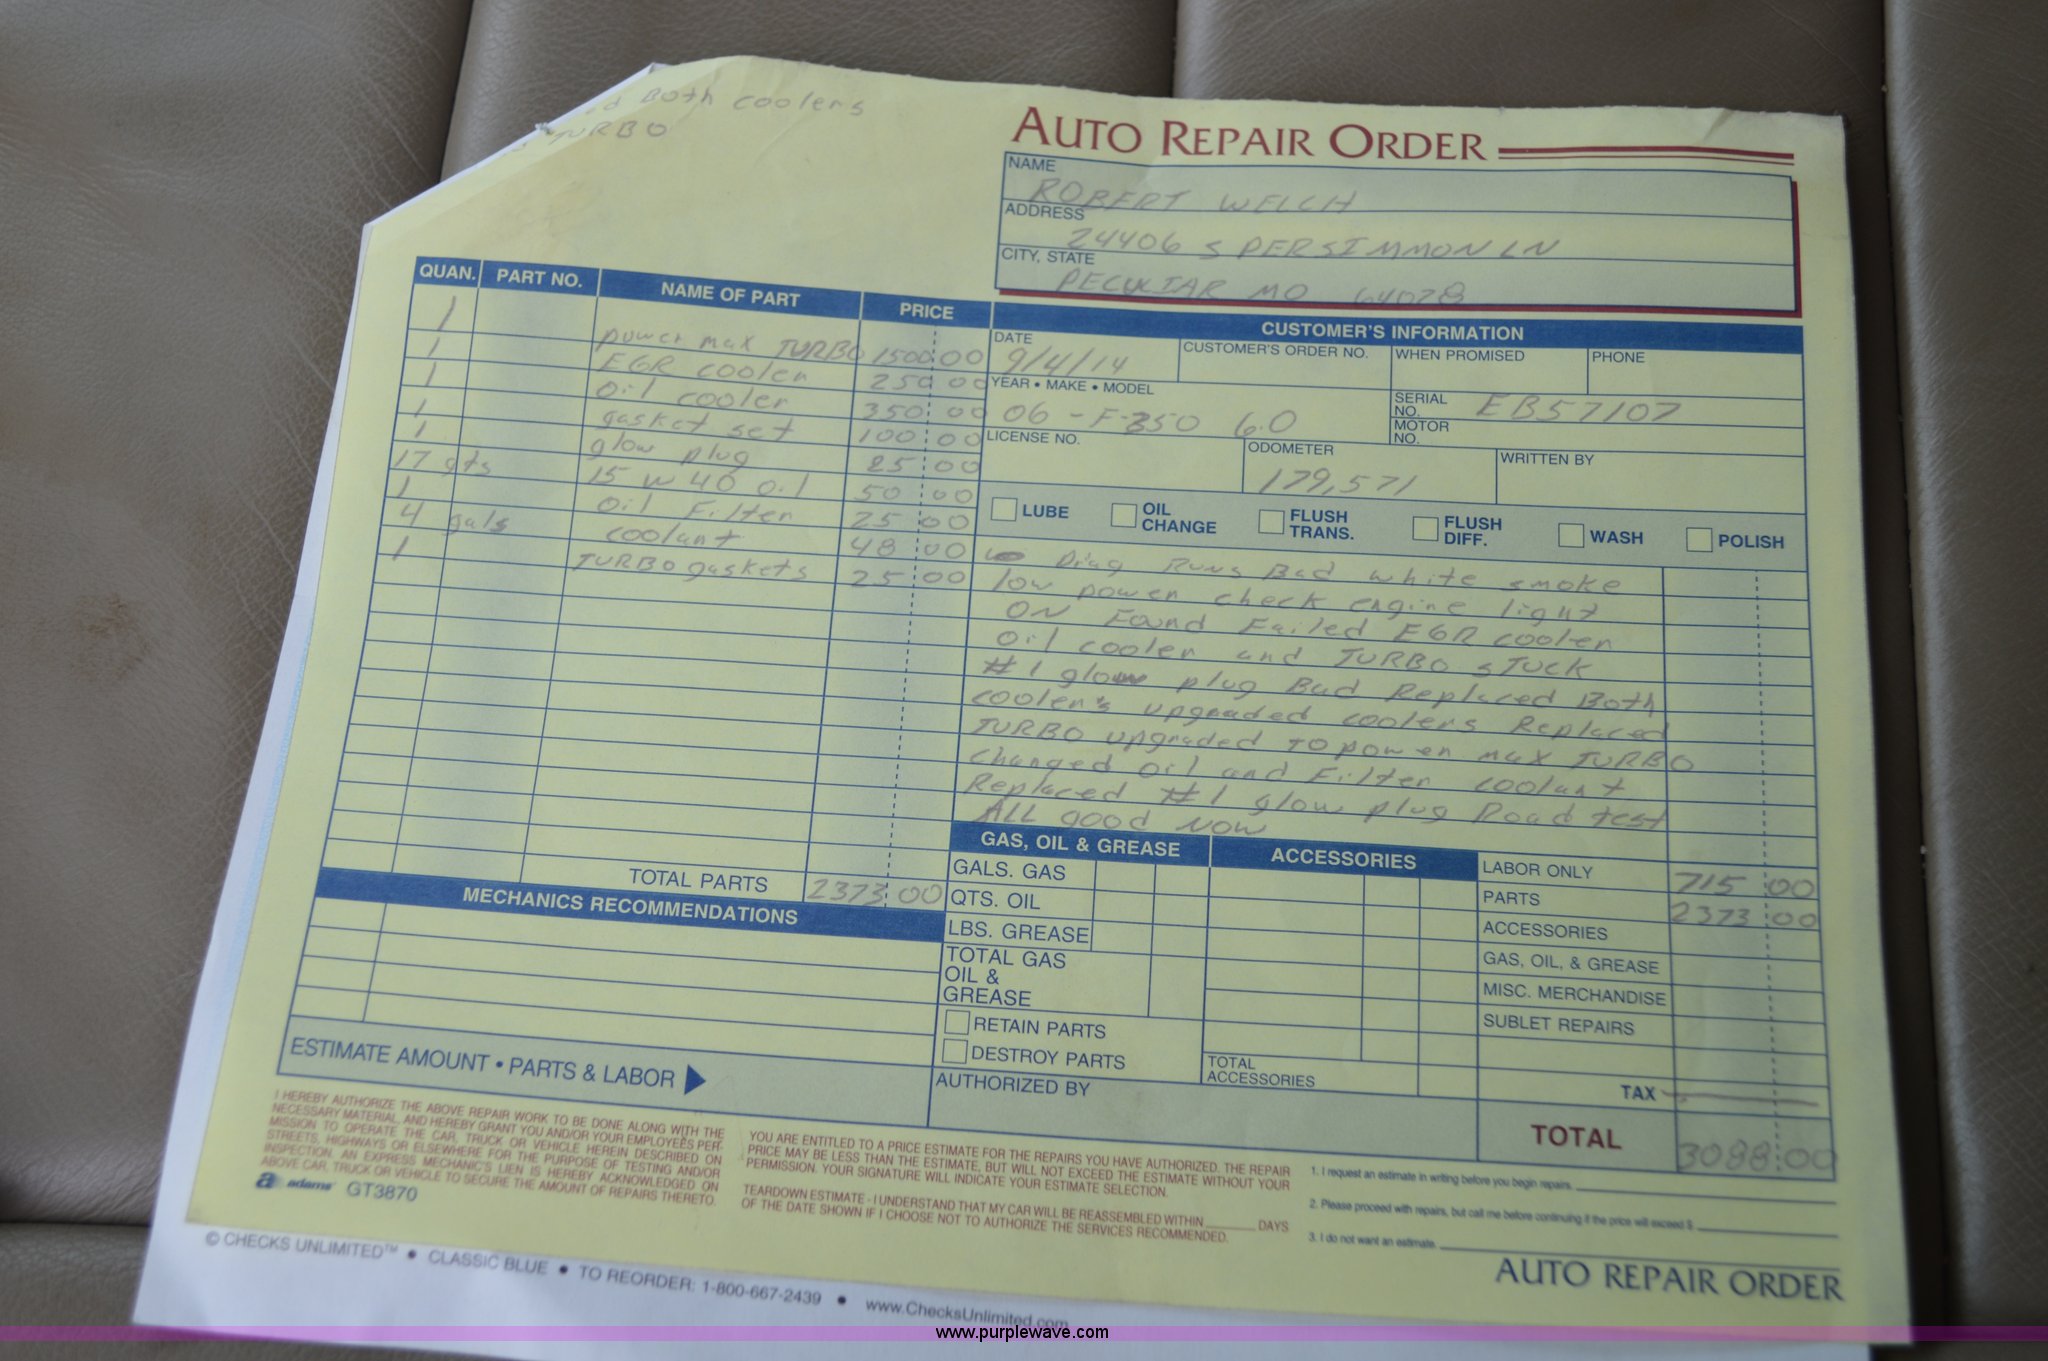 Both coolers
TURBO
AUTO REPAIR ORDER
NAME
ROBERT WELCH
ADDRESS
24406 S PERSIMMON LN
CITY, STATE
PECULIAR MO 64078
QUAN. PART NO. NAME OF PART PRICE
1 power max TURBO 1500 00
1 EGR cooler 250 00
1 oil cooler 350 00
1 gasket set 100 00
1 glow plug 25 00
17 qts 15 W 40 oil 50 00
1 oil Filter 25 00
4 gals coolant 48 00
1 TURBO gaskets 25 00
TOTAL PARTS 2373 00
CUSTOMER'S INFORMATION
DATE 9/4/14 CUSTOMER'S ORDER NO. WHEN PROMISED PHONE
YEAR • MAKE • MODEL 06 - F-350 6.0
SERIAL NO. EB57107
MOTOR NO.
LICENSE NO. ODOMETER 179,571 WRITTEN BY
LUBE OIL CHANGE FLUSH TRANS. FLUSH DIFF. WASH POLISH
Diag Runs Bad white smoke
low power check engine light
ON Found Failed EGR cooler
oil cooler and TURBO STUCK
#1 glow plug Bad Replaced Both
cooler's upgraded coolers Replaced
TURBO upgraded TO power max TURBO
changed oil and Filter coolant
Replaced #1 glow plug Road test
ALL good NOW
MECHANICS RECOMMENDATIONS
ESTIMATE AMOUNT • PARTS & LABOR
GAS, OIL & GREASE
GALS. GAS
QTS. OIL
LBS. GREASE
TOTAL GAS OIL & GREASE
RETAIN PARTS
DESTROY PARTS
AUTHORIZED BY
ACCESSORIES
TOTAL ACCESSORIES
LABOR ONLY 715 00
PARTS 2373 00
ACCESSORIES
GAS, OIL, & GREASE
MISC. MERCHANDISE
SUBLET REPAIRS
TAX
TOTAL 3088 00
I HEREBY AUTHORIZE THE ABOVE REPAIR WORK TO BE DONE ALONG WITH THE
NECESSARY MATERIAL, AND HEREBY GRANT YOU AND/OR YOUR EMPLOYEES PER-
MISSION TO OPERATE THE CAR, TRUCK OR VEHICLE HEREIN DESCRIBED ON
STREETS, HIGHWAYS OR ELSEWHERE FOR THE PURPOSE OF TESTING AND/OR
INSPECTION. AN EXPRESS MECHANIC'S LIEN IS HEREBY ACKNOWLEDGED ON
ABOVE CAR, TRUCK OR VEHICLE TO SECURE THE AMOUNT OF REPAIRS THERETO.
adams GT3870
YOU ARE ENTITLED TO A PRICE ESTIMATE FOR THE REPAIRS YOU HAVE AUTHORIZED. THE REPAIR
PRICE MAY BE LESS THAN THE ESTIMATE, BUT WILL NOT EXCEED THE ESTIMATE WITHOUT YOUR
PERMISSION. YOUR SIGNATURE WILL INDICATE YOUR ESTIMATE SELECTION.
TEARDOWN ESTIMATE - I UNDERSTAND THAT MY CAR WILL BE REASSEMBLED WITHIN ______ DAYS
OF THE DATE SHOWN IF I CHOOSE NOT TO AUTHORIZE THE SERVICES RECOMMENDED.
1. I request an estimate in writing before you begin repairs.
2. Please proceed with repairs, but call me before continuing if the price will exceed $
3. I do not want an estimate.
AUTO REPAIR ORDER
© CHECKS UNLIMITED™ • CLASSIC BLUE • TO REORDER: 1-800-667-2439 • www.ChecksUnlimited.com
www.purplewave.com